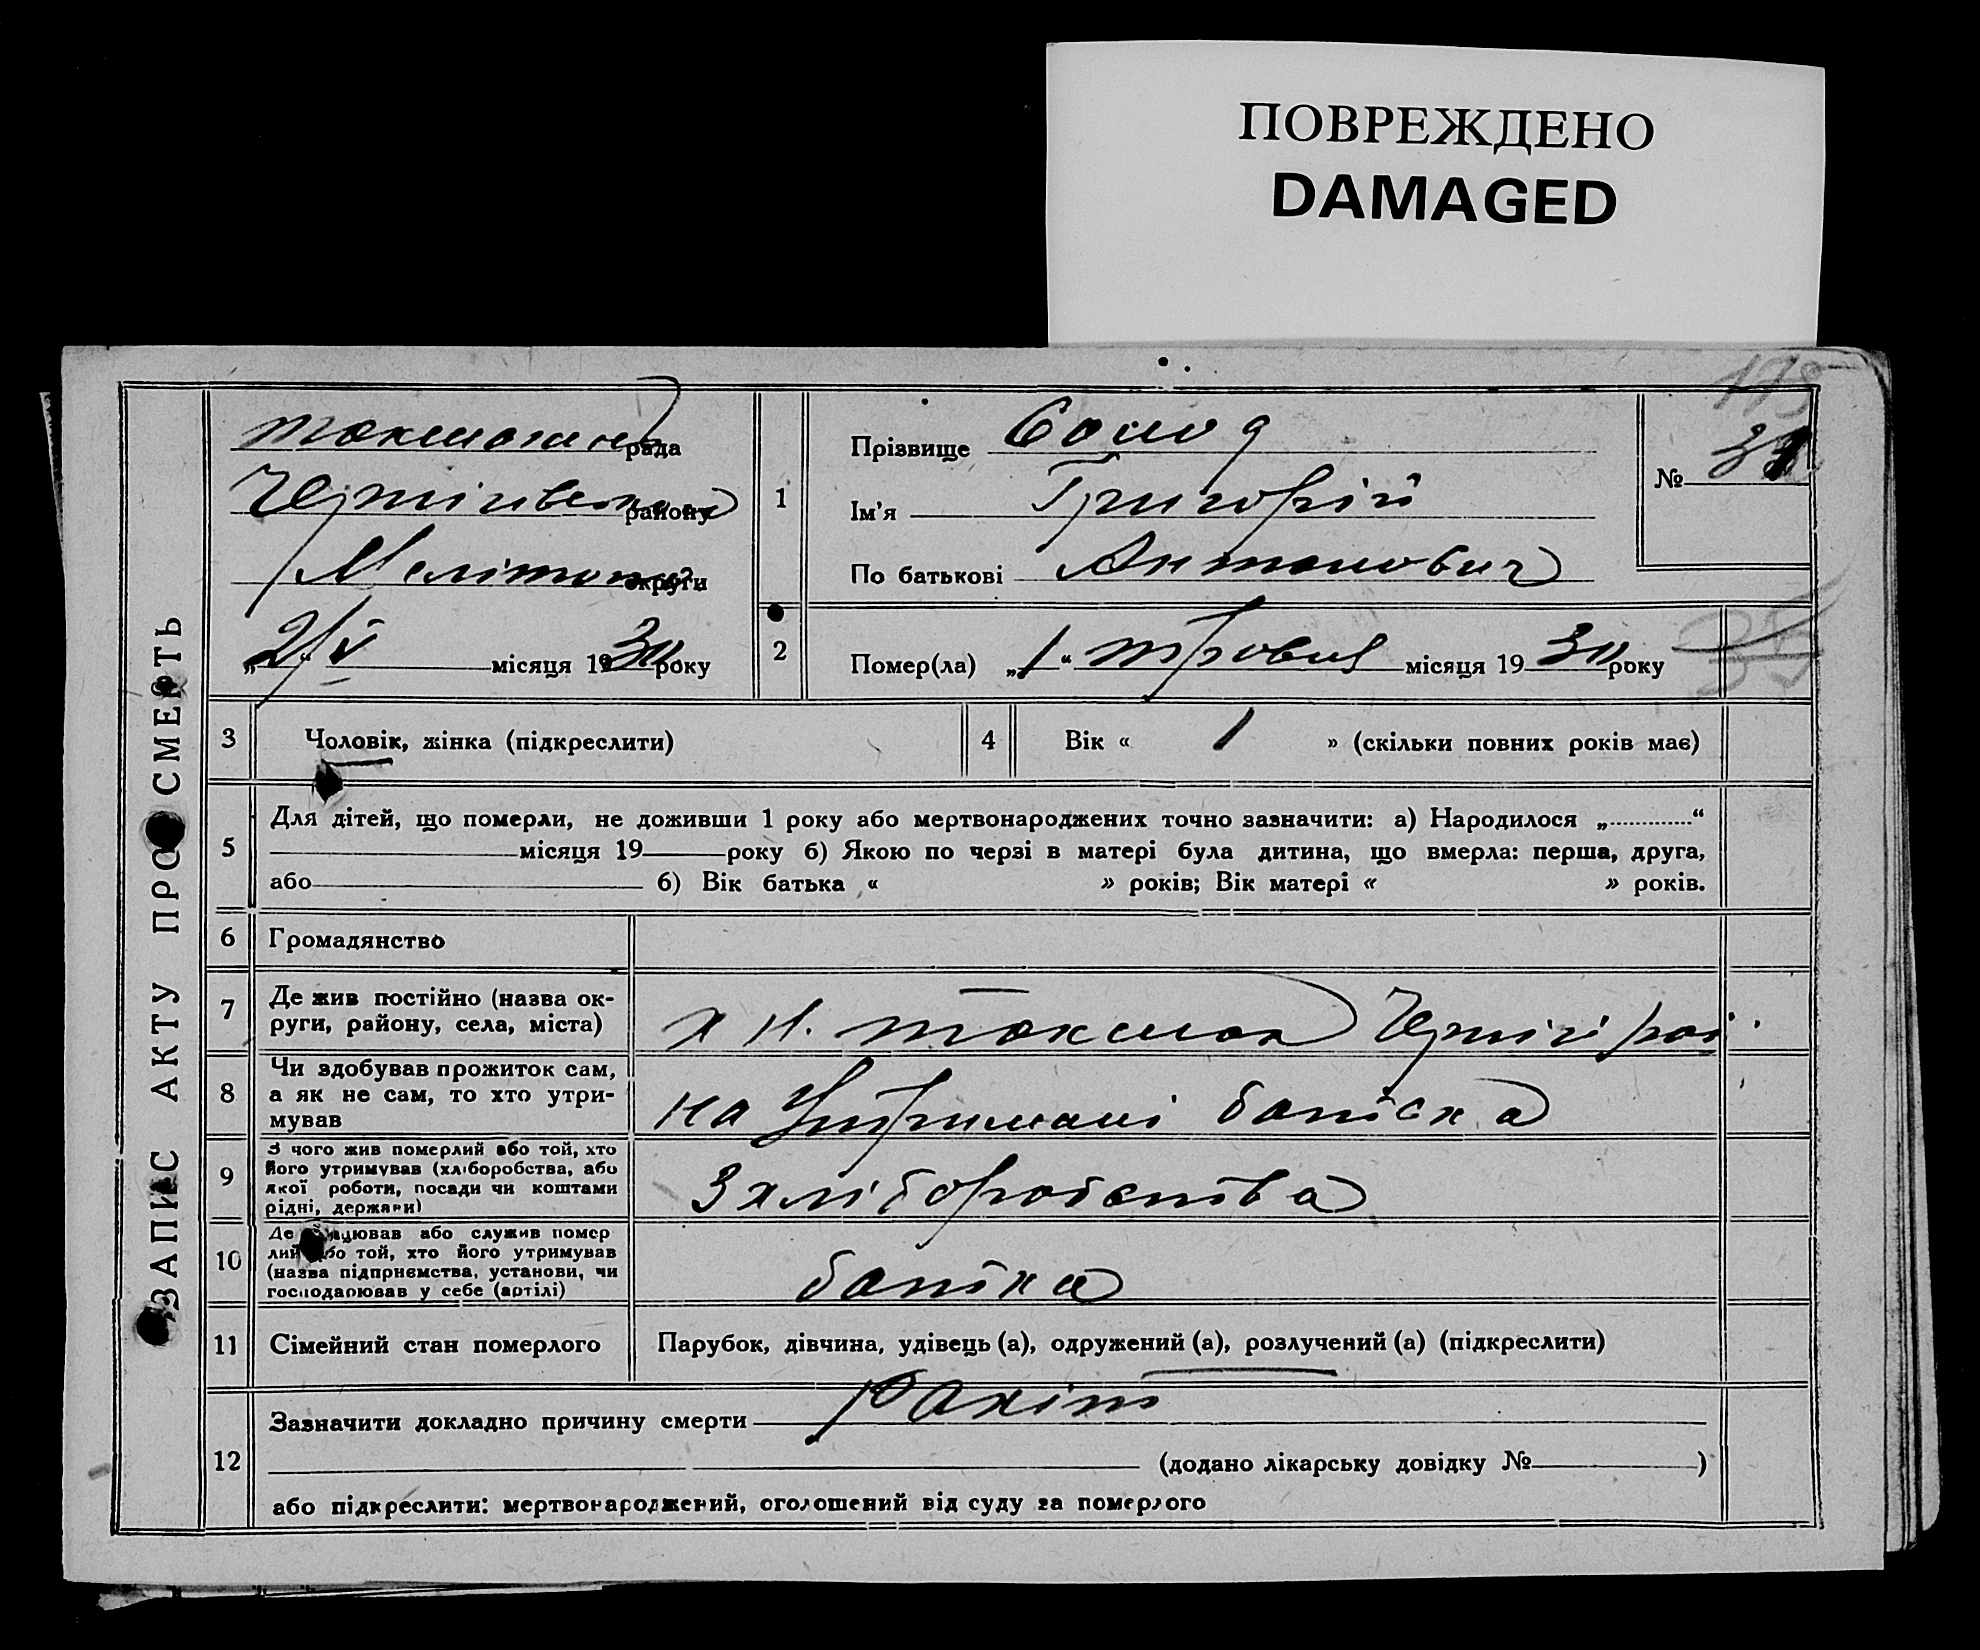 ПОВРЕЖДЕНО
DAMAGED
175
ЗАПИС АКТУ ПРО СМЕРТЬ
рада
району
округи
2/V місяця 1930 року
1
Прізвище Солод
Ім'я Григорій
По батькові Антонович
№ 31
2
Помер(ла) „1“ травня місяця 1930 року
3
Чоловік, жінка (підкреслити)
4
Вік « 1 » (скільки повних років має)
5
Для дітей, що померли, не доживши 1 року або мертвонароджених точно зазначити: а) Народилося „............“
місяця 19 року б) Якою по черзі в матері була дитина, що вмерла: перша, друга,
або б) Вік батька « » років; Вік матері « » років.
6
Громадянство
7
Де жив постійно (назва ок-
руги, району, села, міста)
х Н. Токмак Черніг рай.
8
Чи здобував прожиток сам,
а як не сам, то хто утри-
мував
на утримані батька
9
З чого жив померлий або той, хто
його утримував (хліборобства, або
якої роботи, посади чи коштами
рідні, держави)
З хліборобства
10
Де працював або служив помер
лий або той, хто його утримував
(назва підприємства, установи, чи
господарював у себе (артілі)
батька
11
Сімейний стан померлого
Парубок, дівчина, удівець (а), одружений (а), розлучений (а) (підкреслити)
12
Зазначити докладно причину смерти Рахіт
(додано лікарську довідку № )
або підкреслити: мертвонароджений, оголошений від суду за померлого